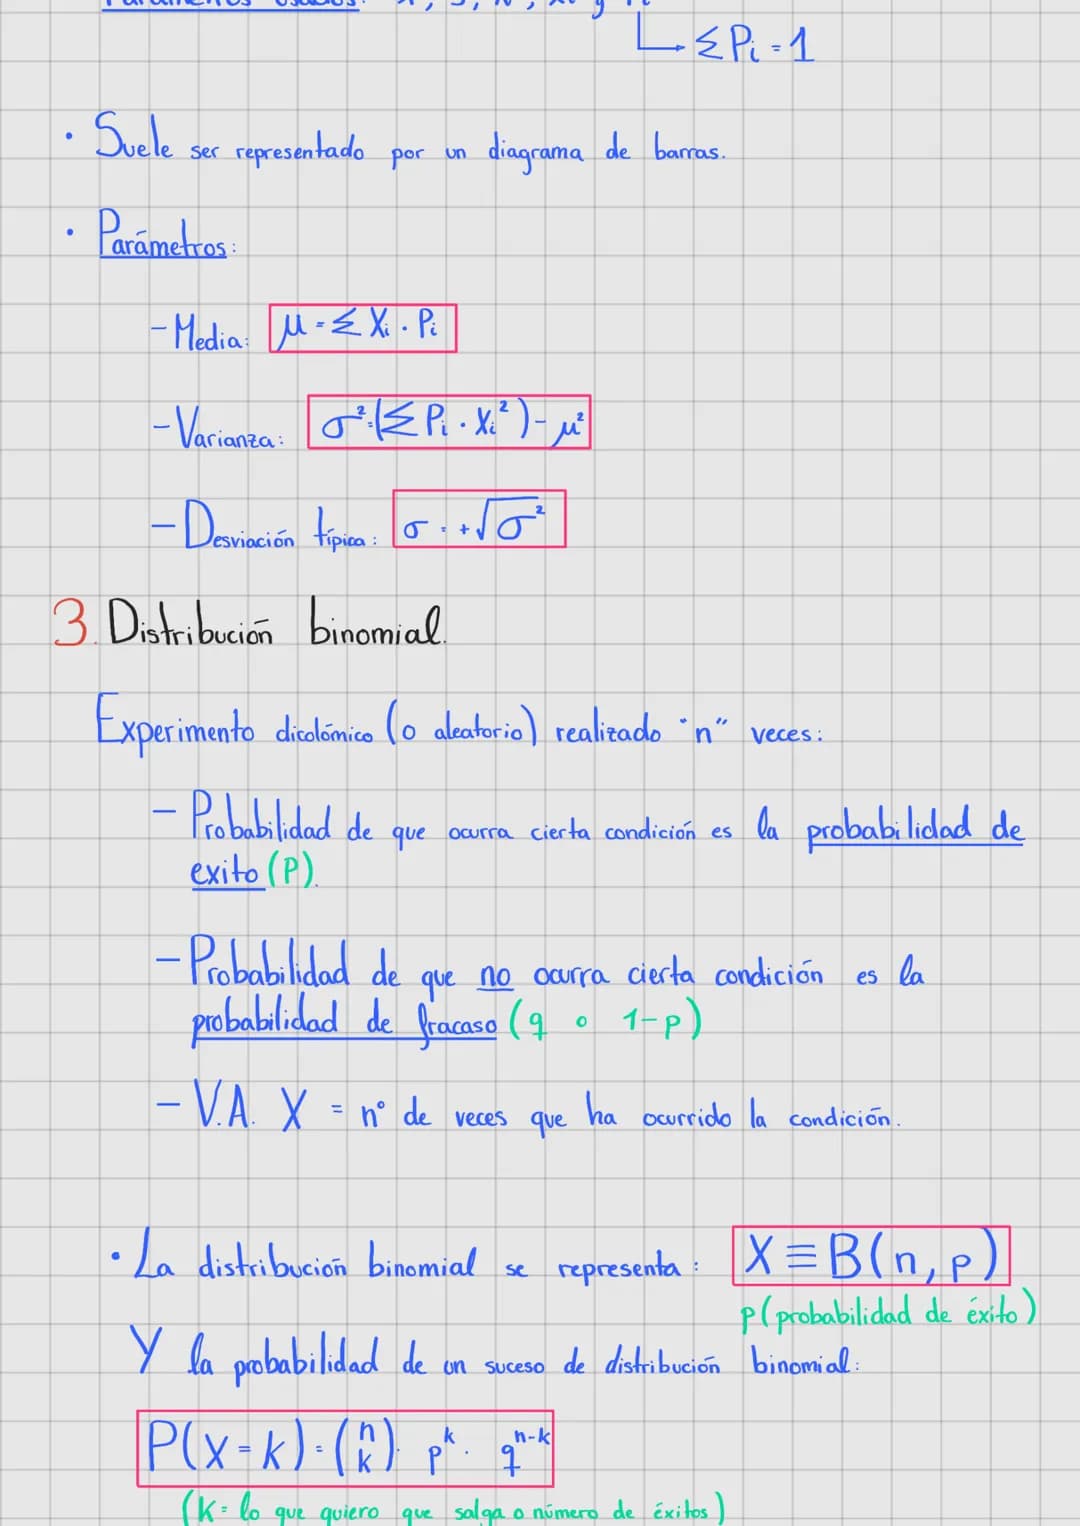 Parámetros usados:
↳ ΣPi = 1
· Suele ser representado por un diagrama de barras.
· Parámetros:
- Media: μ = Σ Xi · Pi
- Varianza: σ² = (Σ Pi · Xi²) - μ²
- Desviación típica: σ = +√σ²
3. Distribución binomial.
Experimento dicotómico (o aleatorio) realizado "n" veces:
- Probabilidad de que ocurra cierta condición es la probabilidad de
exito (P).
- Probabilidad de que no ocurra cierta condición es la
probabilidad de fracaso (q o 1-p)
- V.A. X = nº de veces que ha ocurrido la condición.
· La distribución binomial se representa: X ≡ B(n, p)
p (probabilidad de éxito)
Y la probabilidad de un suceso de distribución binomial:
P(x = k) = (n k) · p^k · q^n-k
(K = lo que quiero que salga o número de éxitos)